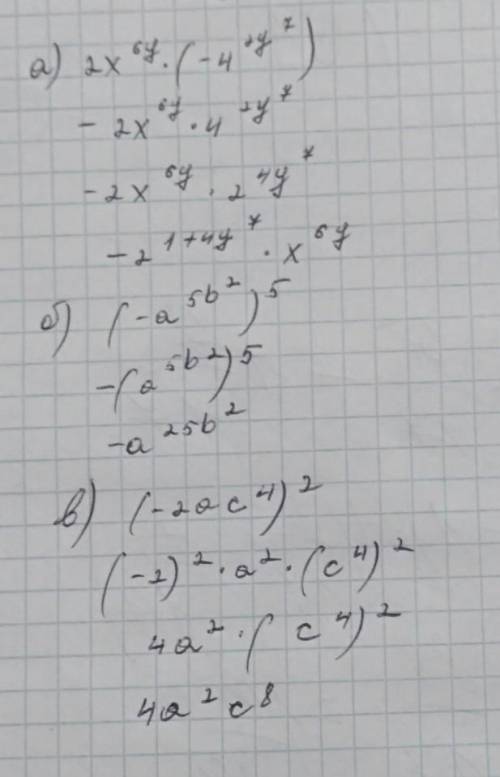 а) 2x^{6y} · (-4^{2y^7})
- 2x^{6y} · 4^{2y^7}
- 2x^{6y} · 2^{4y^7}
- 2^{1+4y^7} · x^{6y}
б) (-a^{5b^2})^5
-(a^{5b^2})^5
-a^{25b^2}
в) (-2ac^4)^2
(-2)^2 · a^2 · (c^4)^2
4a^2 · (c^4)^2
4a^2c^8